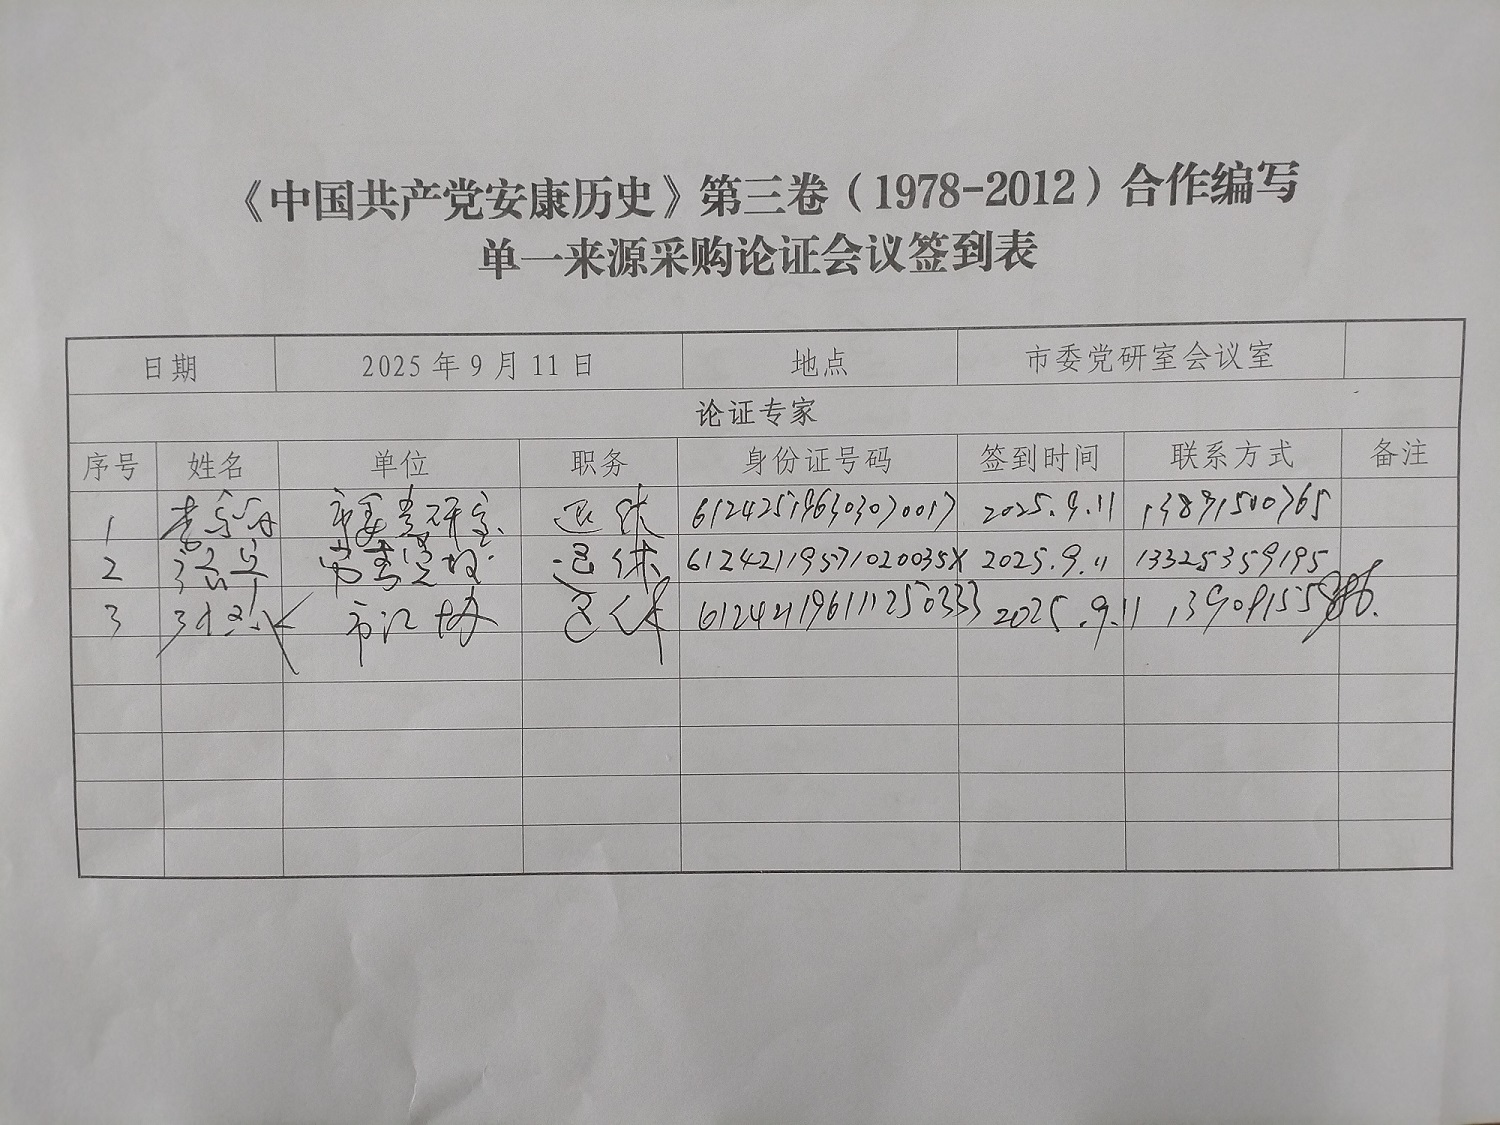 《中国共产党安康历史》第三卷（1978-2012）合作编写
单一来源采购论证会议签到表
日期 2025年9月11日 地点 市委党研室会议室
论证专家
序号 姓名 单位 职务 身份证号码 签到时间 联系方式 备注
1 市委党研室 退休 612425196303070017 2025.9.11 13891500765
2 市委党校 退休 2025.9.11 13325359195
3 退休 2025.9.11